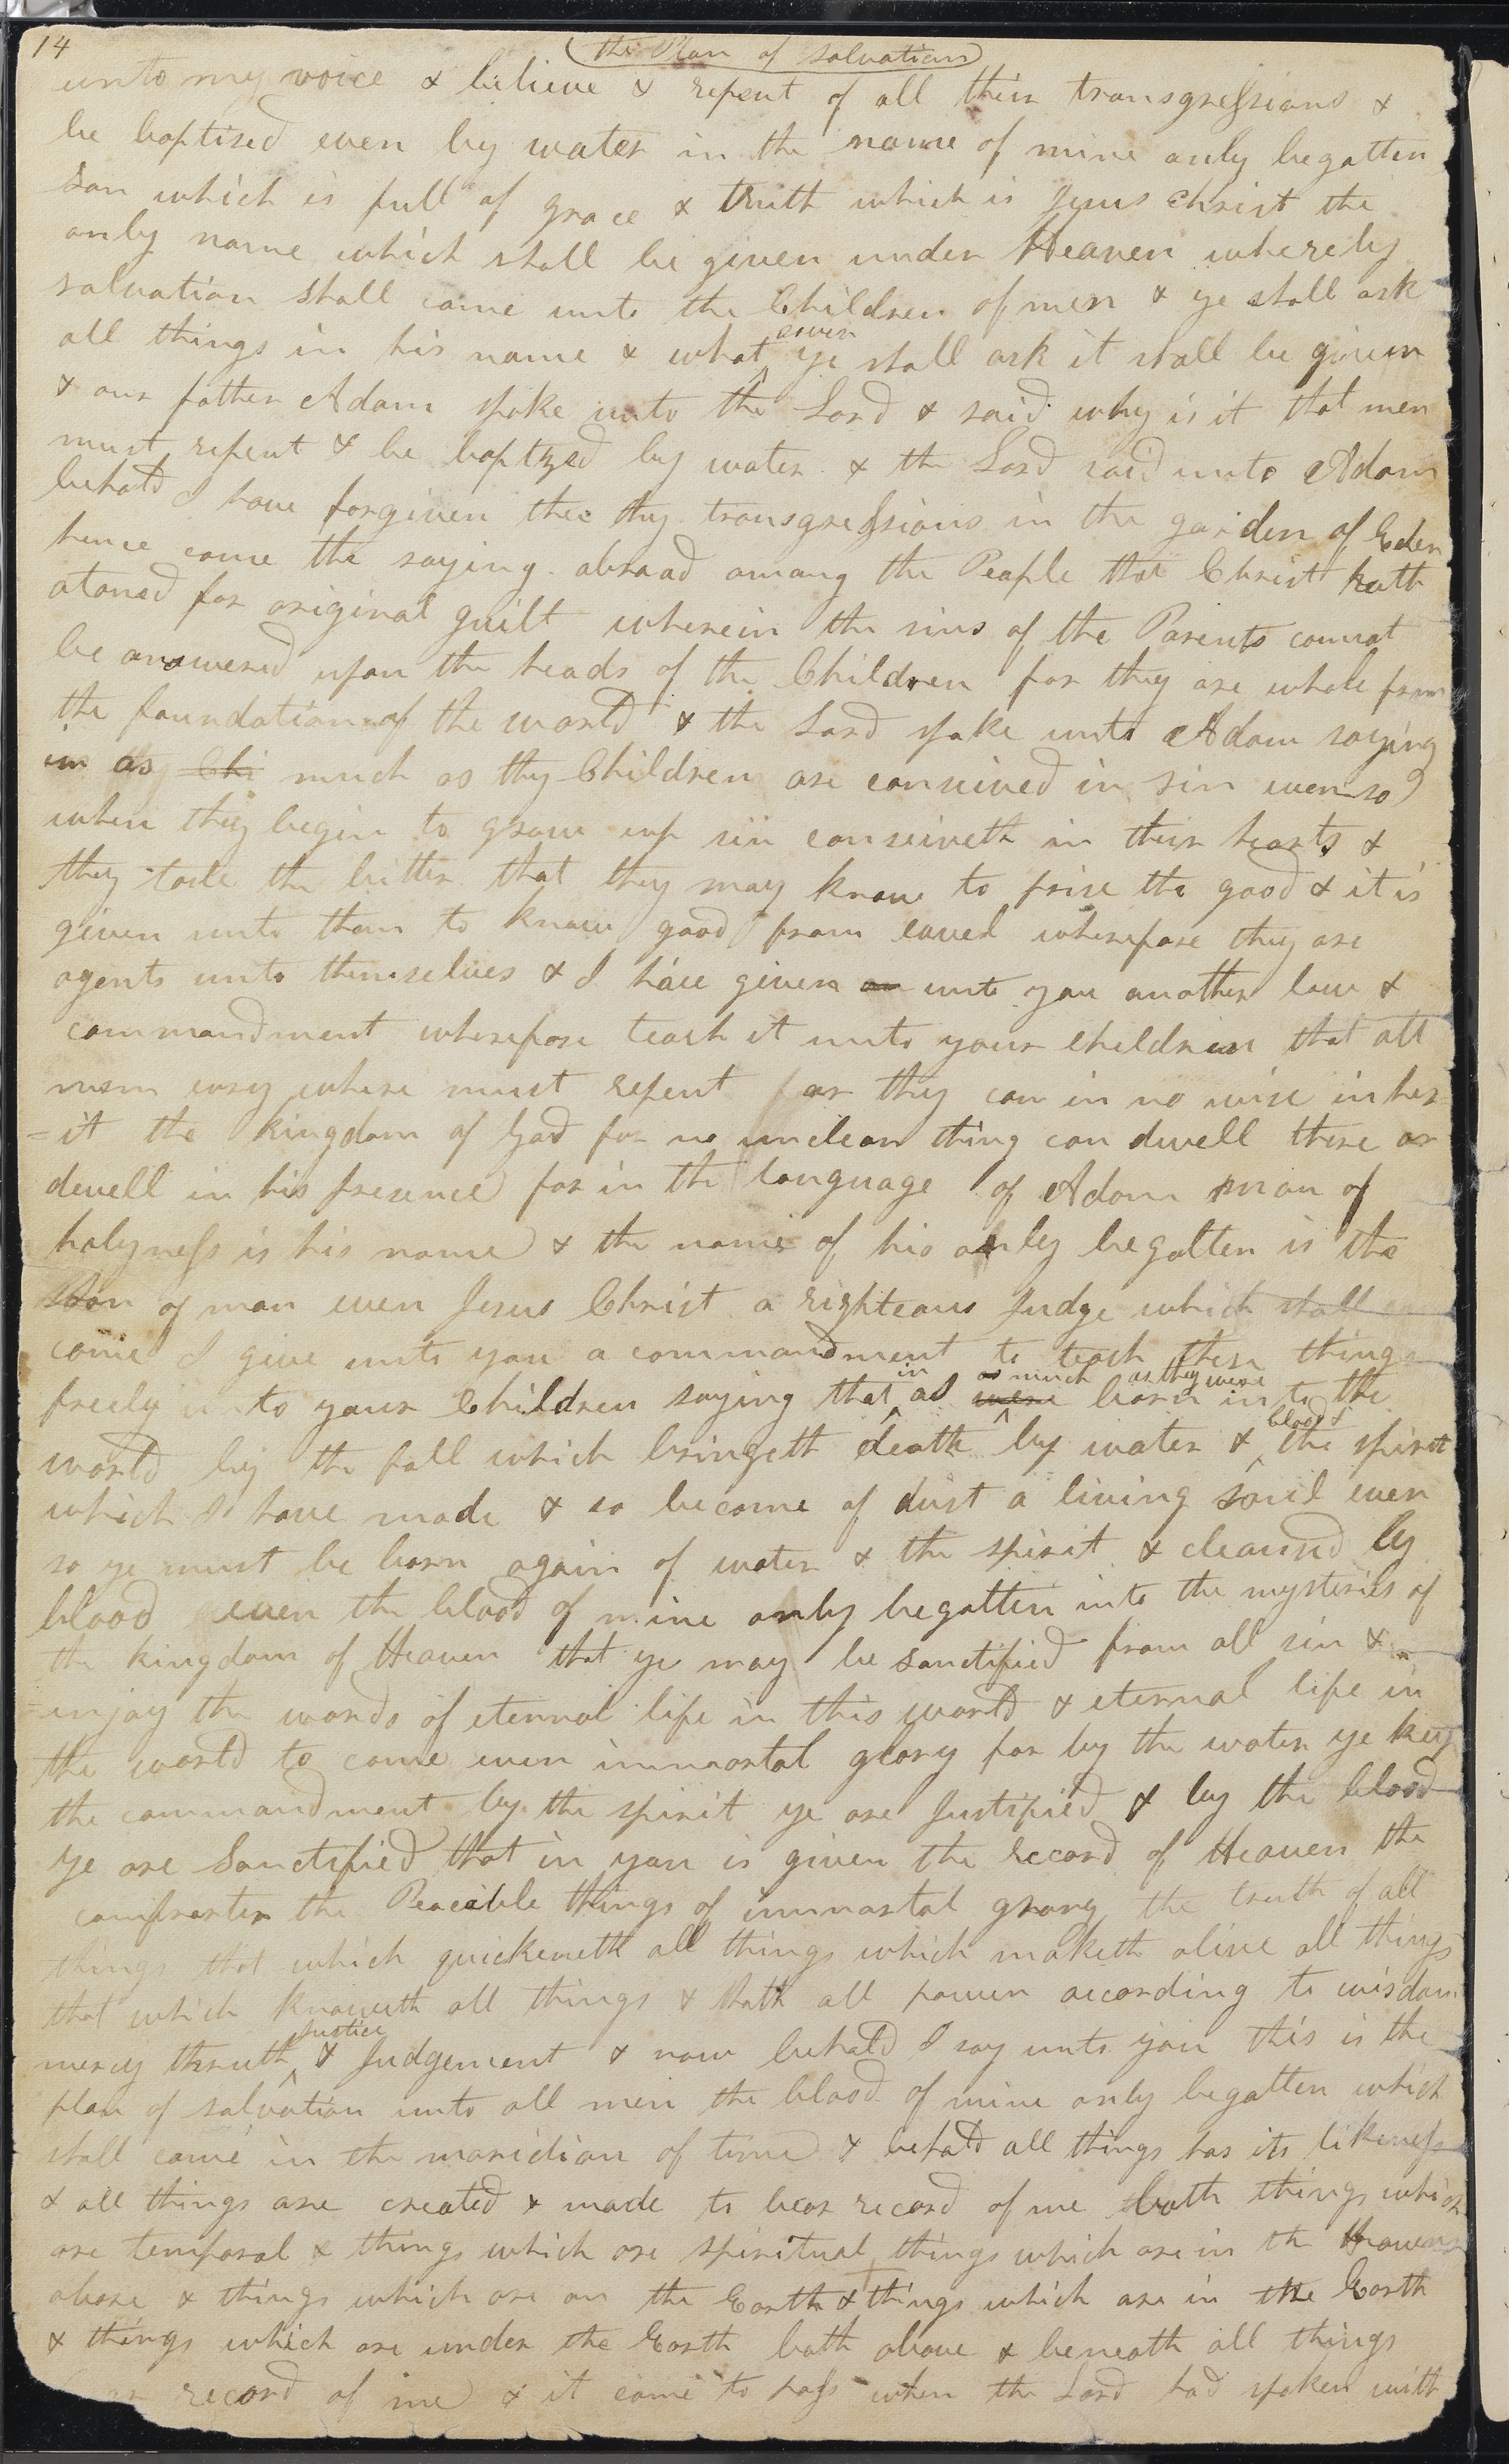 14
the Plan of salvation
unto my voice & believe & repent of all their transgressions &
be baptised even by water in the name of mine only begotten
Son which is full of grace & truth which is Jesus Christ the
only name which shall be given under Heaven whereby
salvation shall come unto the Children of men & ye shall ask
all things in his name & what soever ye shall ask it shall be given
& our father Adam spoke unto the Lord & said why is it that men
must repent & be baptzed by water & the Lord said unto Adam
behold I have forgiven thee thy transgressions in the garden of Eden
hence came the saying abroad among the People that Christ hath
atoned for original guilt wherein the sins of the Parents cannot
be answered upon the heads of the Children for they are whole from
the foundation of the world & the Lord spake unto Adam saying
in as Chi much as thy Children are conceived in sin even so
when they begin to grow up sin conseiveth in their hearts &
they taste the bitter that they may know to prise the good & it is
given unto them to know good from eavel wherefore they are
agents unto themselves & I have given unto you another law &
commandment wherefore teach it unto your children that all
men evry where must repent or they can in no wise inher
=it the kingdom of God for no unclean thing can dwell there or
dwell in his presence for in the language of Adam man of
holyness is his name & the name of his only begotten is the
Son of man even Jesus Christ a righteous Judge which shall
come I give unto you a commandment to teach these things
freely unto your Children saying that in as were as much as they were born in to the
world by the fall which bringeth death by water & blood & the spirit
which I have made & so become of dust a living soul even
so ye must be born again of water & the spirit & cleansed by
blood even the blood of mine only begotten into the mysteries of
the kingdom of Heaven that ye may be sanctified from all sin &
injoy the words of eternal life in this world & eternal life in
the world to come even immortal glory for by the water ye keep
the commandment by the spirit ye are Justified & by the blood
ye are Sanctified that in you is given the record of Heaven the
comforter the Peacible things of immortal glory the truth of all
things that which quickeneth all things which maketh alive all things
that which knoweth all things & hath all power according to wisdom
mercy thruth Justice & Judgement & now behold I say unto you this is the
plan of salvation unto all men the blood of mine only begotten which
shall come in the maridian of time & behold all things has its likeness
& all things are created & made to bear record of me both things which
are temporal & things which are spiritual things which are in the Heavens
above & things which are on the Earth & things which are in the Earth
& things which are under the Earth both above & beneath all things
record of me & it came to pass when the Lord had spoken with